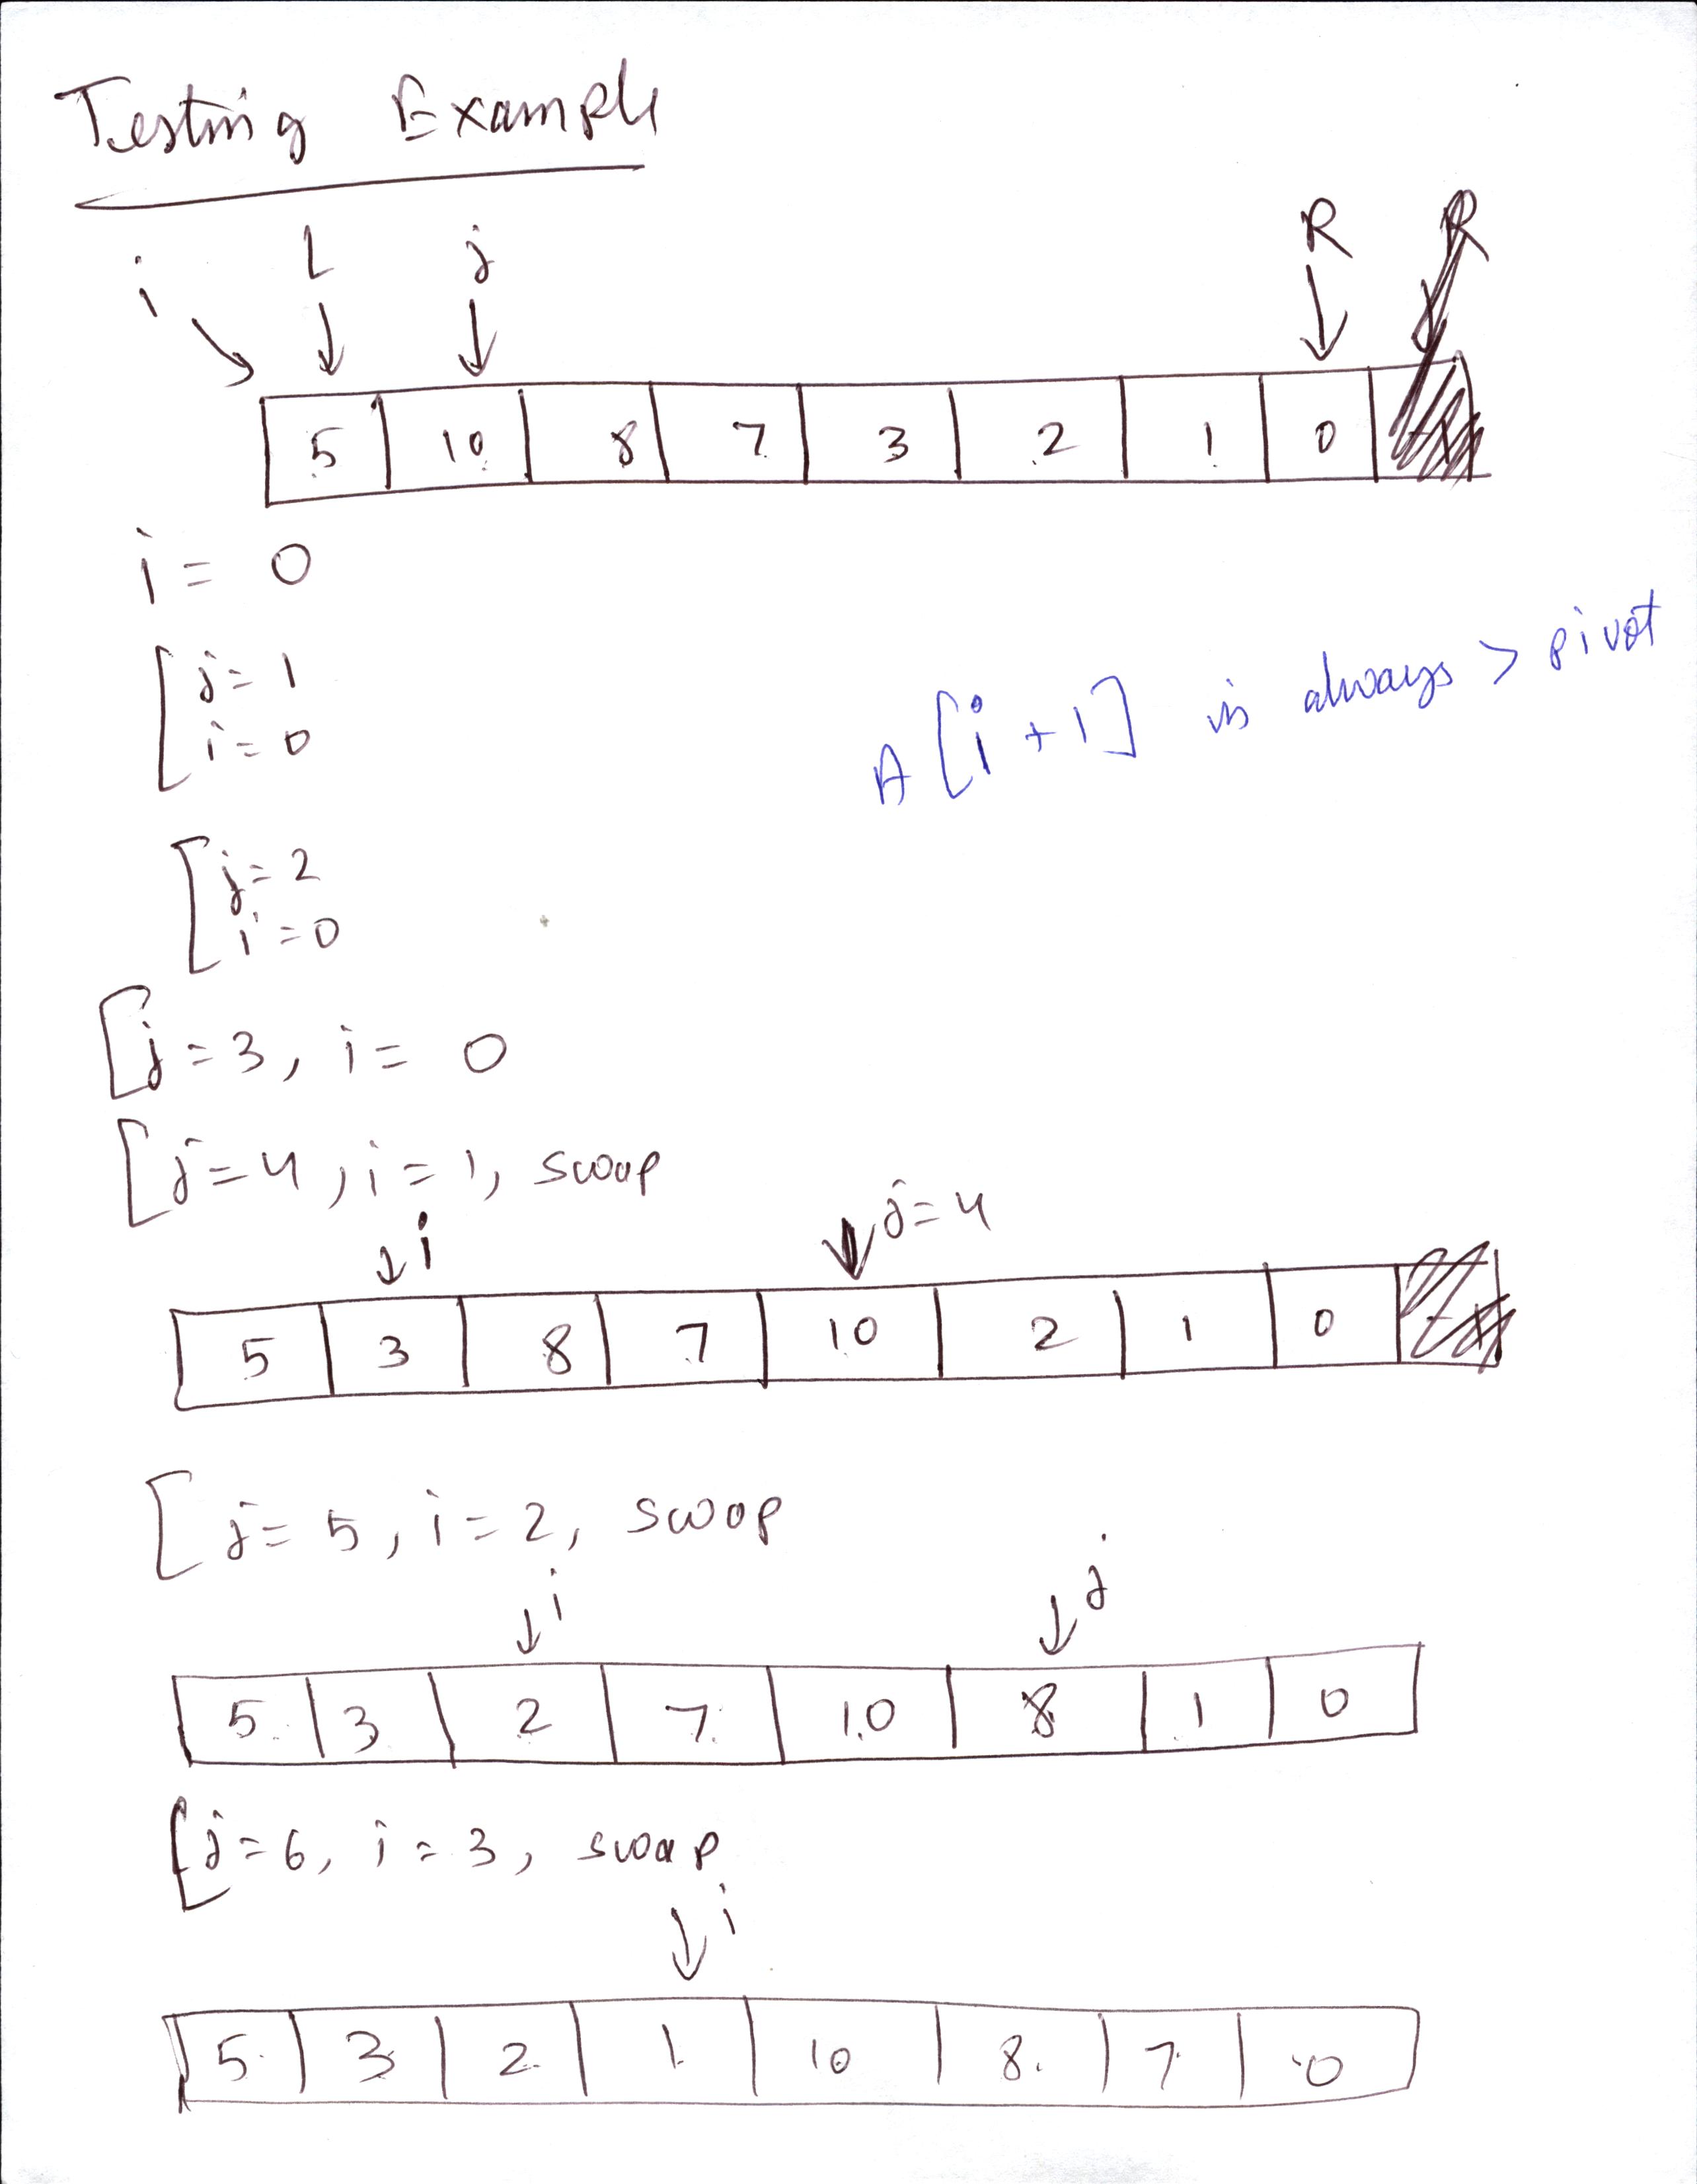 Testing Example
i L j R R
5 10 8 7 3 2 1 0
i = 0
j = 1
i = 0
A[i+1] is always > pivot
j = 2
i = 0
j = 3, i = 0
j = 4, i = 1, swap
i j = 4
5 3 8 7 10 2 1 0
j = 5, i = 2, swap
i j
5 3 2 7 10 8 1 0
j = 6, i = 3, swap
i
5 3 2 1 10 8 7 0